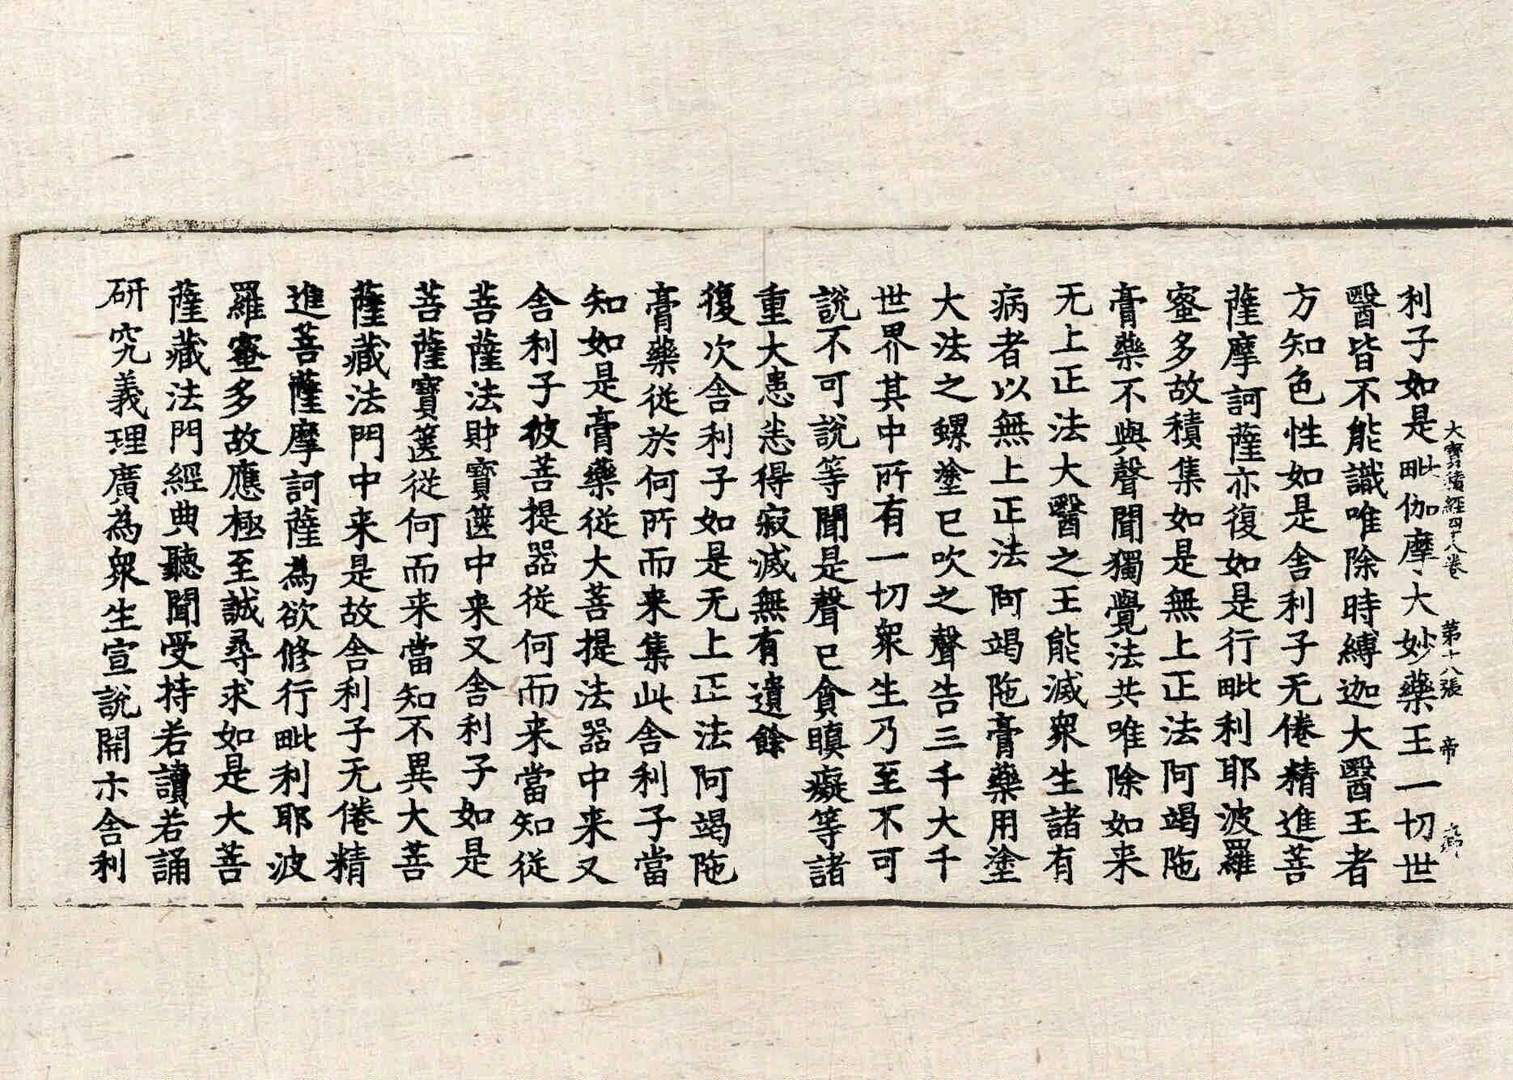 大寶積經四十八卷 第十八張 帝
利子如是毗伽摩大妙藥王一切世
醫皆不能識唯除時縛迦大醫王者
方知色性如是舍利子无倦精進菩
薩摩訶薩亦復如是行毗利耶波羅
蜜多故積集如是無上正法阿竭陁
膏藥不與聲聞獨覺法共唯除如来
无上正法大醫之王能滅衆生諸有
病者以無上正法阿竭陁膏藥用塗
大法之螺塗已吹之聲告三千大千
世界其中所有一切衆生乃至不可
說不可說等聞是聲已貪瞋癡等諸
重大患悉得寂滅無有遺餘
復次舍利子如是无上正法阿竭陁
膏藥從於何所而来集此舍利子當
知如是膏藥從大菩提法器中来又
舍利子彼菩提器從何而来當知從
菩薩法財寶篋中来又舍利子如是
菩薩寶篋從何而来當知不異大菩
薩藏法門中来是故舍利子无倦精
進菩薩摩訶薩為欲修行毗利耶波
羅蜜多故應極至誠尋求如是大菩
薩藏法門經典聽聞受持若讀若誦
研究義理廣為衆生宣說開示舍利